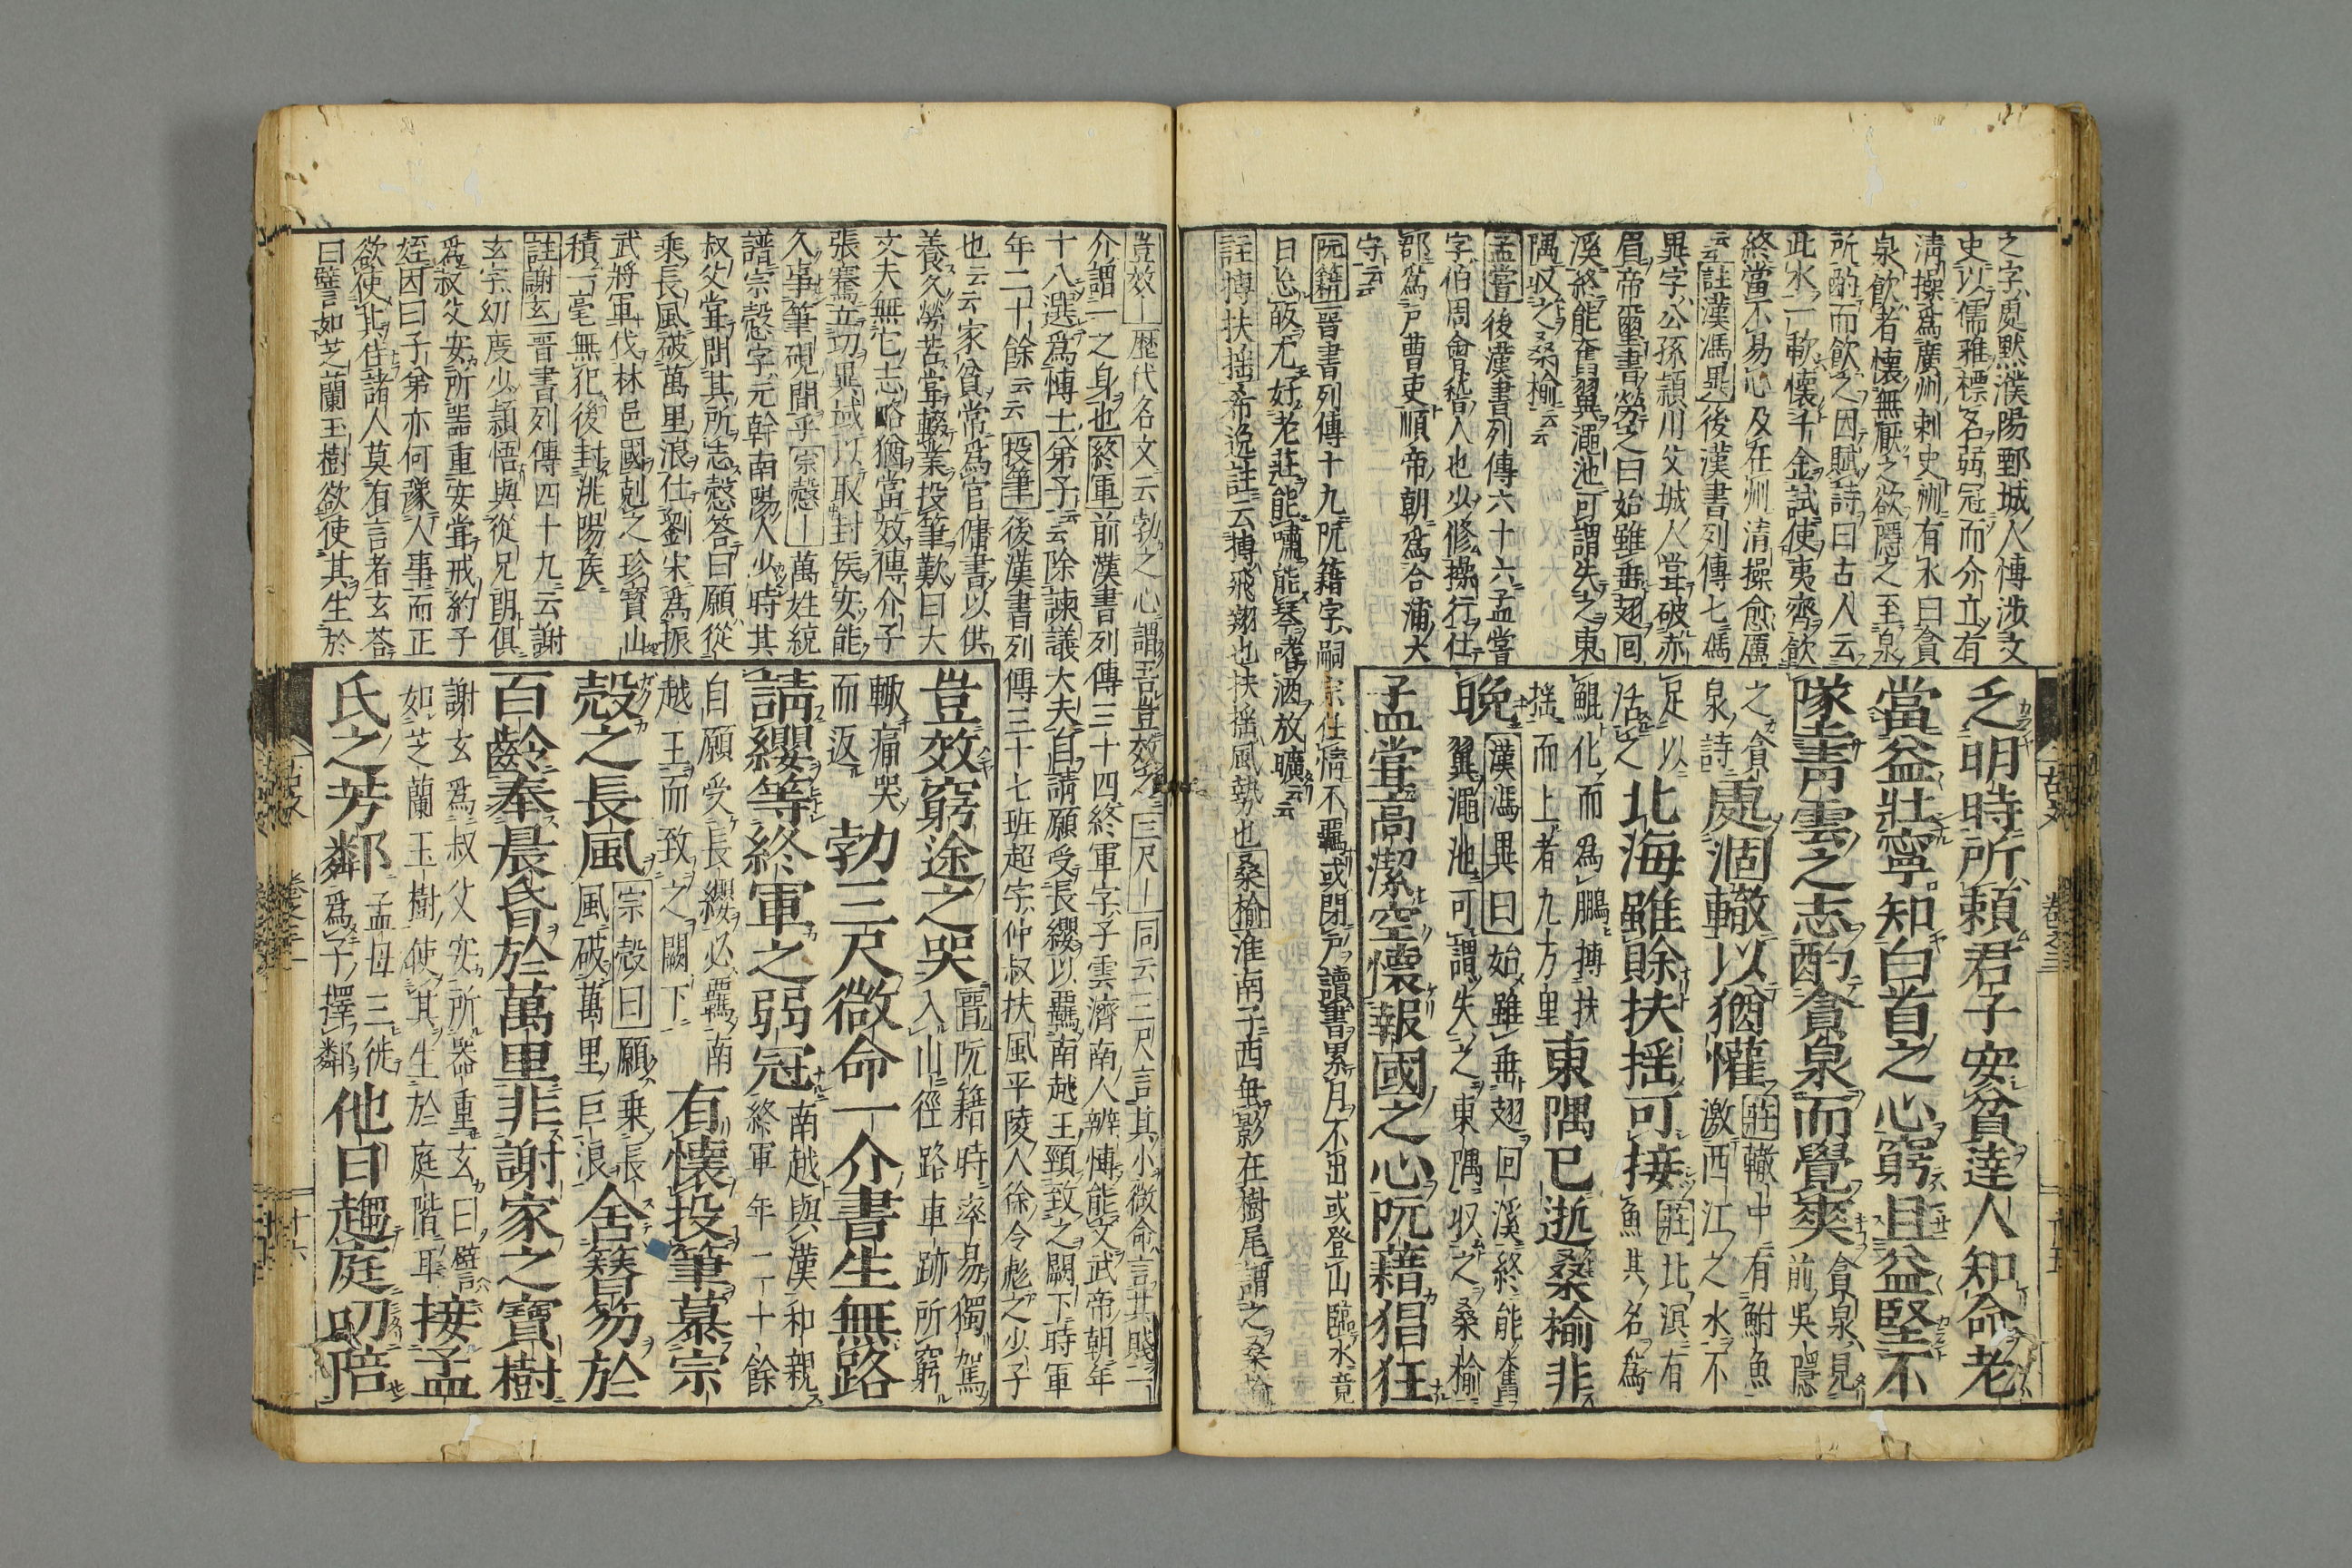 之字處黙濮陽鄄城人博涉文
史以儒雅標名弱冠而介立有
清操爲廣州刺史州有水曰貪
泉飲者懷無厭之欲隱之至泉
所酌而飲之因賦詩曰古人云
此水一歃懷千金試使夷齊飲
終當不易心及在州清操愈厲
云云註漢馮異後漢書列傳七馮
異字公孫頴川父城人嘗破赤
眉帝璽書勞之曰始雖垂翅回
溪終能奮翼澠池可謂失之東
隅収之桑榆云云
孟嘗後漢書列傳六十六孟嘗
字伯周會稽人也少修操行仕
郡爲戸曹吏順帝朝爲合浦大
守云云
阮籍晋書列傳十九阮籍字嗣宗仕情不羈或閉戸讀書累月不出或登山臨水竟
日忘皈尤好老莊能嘯能琴嗜酒放曠云云
註摶扶揺希逸註云摶飛翔也扶揺風勢也桑榆淮南子西垂影在樹尾謂之桑榆
乏明時所頼君子安貧達人知命老
當益壯寧知白首之心窮且益堅不
墜青雲之志酌貪泉而覺爽貪泉見前吳隱
之貪泉詩處涸轍以猶懽莊轍中有鮒魚激西江之水不
足以活之北海雖賖扶揺可接莊北溟有魚其名爲
鯤化而爲鵬摶扶揺而上者九万里東隅已逝桑榆非
晩漢馮異曰始雖垂翅回溪終能奮翼澠池可謂失之東隅収之桑榆
孟甞高潔空懷報國之心阮藉猖狂
豈效歴代名文云勃之心謂吾豈效之三尺同云三尺言其小微命言其賤一
介謂一之身也終軍前漢書列傳三十四終軍字子雲濟南人辨博能文武帝朝年
十八選爲博士弟子云云除諫議大夫自請願受長纓以羈南越王頸致之闕下時軍
年二十餘云云投筆後漢書列傳三十七班超字仲叔扶風平陵人徐令彪之少子
也云云家貧常爲官傭書以供
養久勞苦甞輟業投筆歎曰大
丈夫無它志略猶當效傅介子
張騫立功異域以取封侯安能
久事筆硯間乎宗慤萬姓統
譜宗慤字元幹南陽人少時其
叔父甞問其所志慤答曰願從
乘長風破萬里浪仕劉宋爲振
武將軍伐林邑國剋之珍寶山
積一毫無犯後封洮陽矦
註謝玄晋書列傳四十九云謝
玄字幼度少頴悟與從兄朗俱
爲叔父安所噐重安甞戒約子
姪因曰子弟亦何豫人事而正
欲使其佳諸人莫有言者玄荅
曰譬如芝蘭玉樹欲使其生於
豈效窮途之哭晋阮籍時率易獨駕入山徑路車跡所窮
輙痛哭而返勃三尺微命一介書生無路
請纓等終軍之弱冠南越與漢和親終軍年二十餘
自願受長纓必羈南越王而致之闕下有懷投筆慕宗
慤之長風宗慤曰願乗長風破萬里巨浪舍簪笏於
百齡奉晨昏於萬里非謝家之寶樹
謝玄爲叔父安所器重玄曰譬如芝蘭玉樹使其生於庭階耳接孟
氏之芳鄰孟母三徙爲子擇鄰他日趨庭叨陪
古文
卷之三
十六